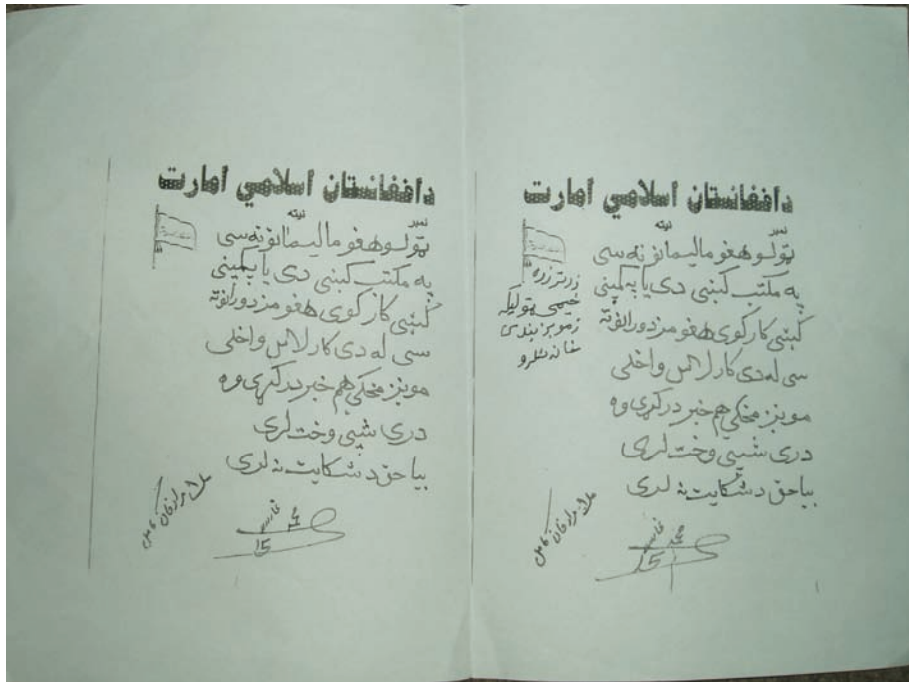 دافغانستان اسلامي امارت
نمبر نېټه
ټولو هغو مالیمانو ته سی
په مکتب کښی دی یا په کمپنی
کښی کار کوی هغو مزدورانو ته
سی له دی کار لاس واخلی
موبز مخکی هم خبر در کړی وه
دری شپی وخت لری
بیا حق د شکایت نه لری
15
دافغانستان اسلامي امارت
نمبر نېټه
ټولو هغو مالیمانو ته سی
په مکتب کښی دی یا پکمپنی
کښی کار کوی هغو مزدورانو ته
سی له دی کار لاس واخلی
موبز مخکی هم خبر در کړی وه
دری شپی وخت لری
بیا حق د شکایت نه لری
15